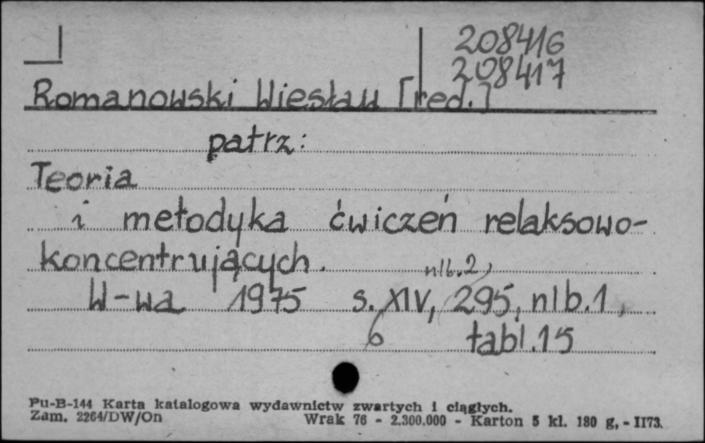 208416
208417
Romanowski Wiesław [red.]
patrz:
Teoria
i metodyka ćwiczeń relaksowo-
koncentrujących.
nlb.2,
W-wa 1975 s. XIV, 295, nlb.1,
6 tabl.15
Pu-B-144 Karta katalogowa wydawnictw zwartych i ciągłych.
Zam. 2264/DW/On Wrak 76 - 2.300.000 - Karton 5 kl. 180 g, - II73.